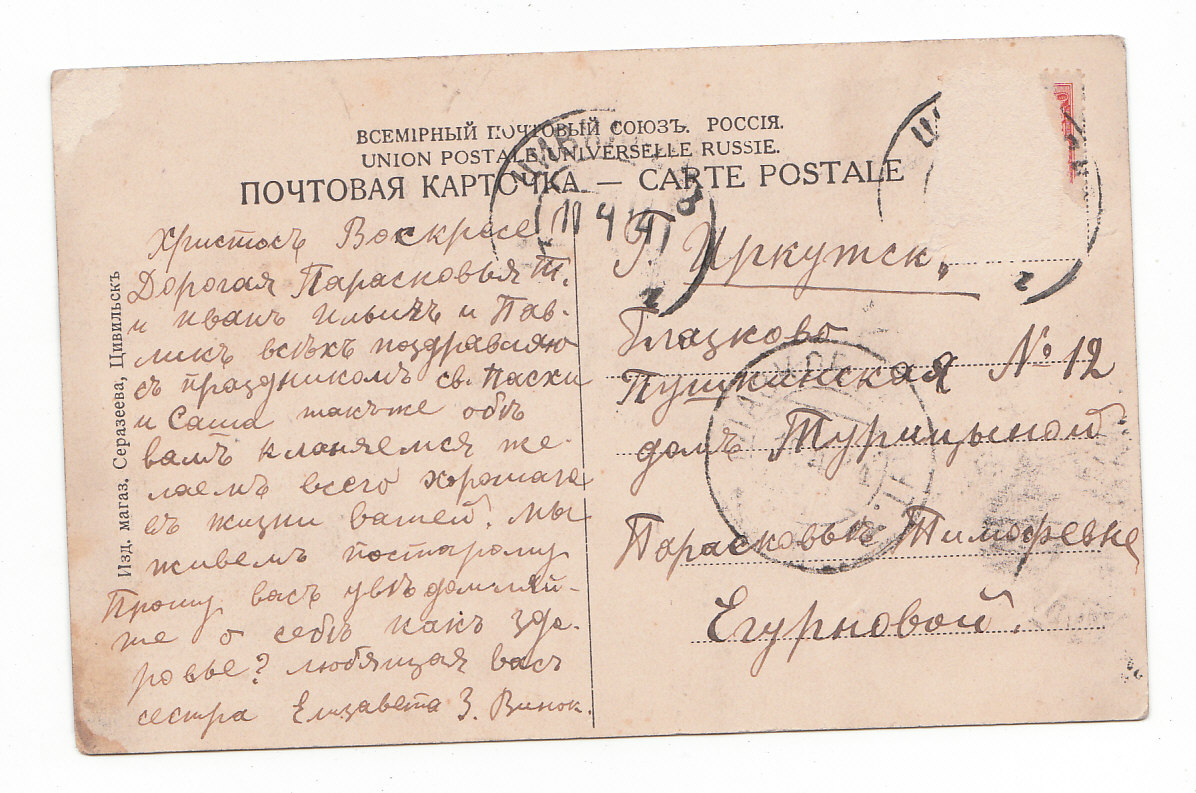 ВСЕМІРНЫЙ ПОЧТОВЫЙ СОЮЗЪ. РОССІЯ.
UNION POSTALE UNIVERSELLE RUSSIE.
ПОЧТОВАЯ КАРТОЧКА — CARTE POSTALE
Христосъ Воскресе
Дорогая Парасковья Т.
и иванъ ильичъ и Пав-
ликъ всѣхъ поздравляю
съ праздникомъ св. Пасхи
и Саша также обѣ
вамъ кланяемся же-
лаемъ всего хорошаго
въ жизни вашей. Мы
живемъ постарому
Прошу васъ увѣдомляй-
те о себѣ какъ здо-
ровье? любящая васъ
сестра Елизавета З. Винок.
Г. Иркутск,
Глазково
Пушкинская № 12
домъ Турицыной
Парасковьѣ Тимофевне
Егурновой.
Изд. магаз. Серазеева, Цивильскъ
11 4